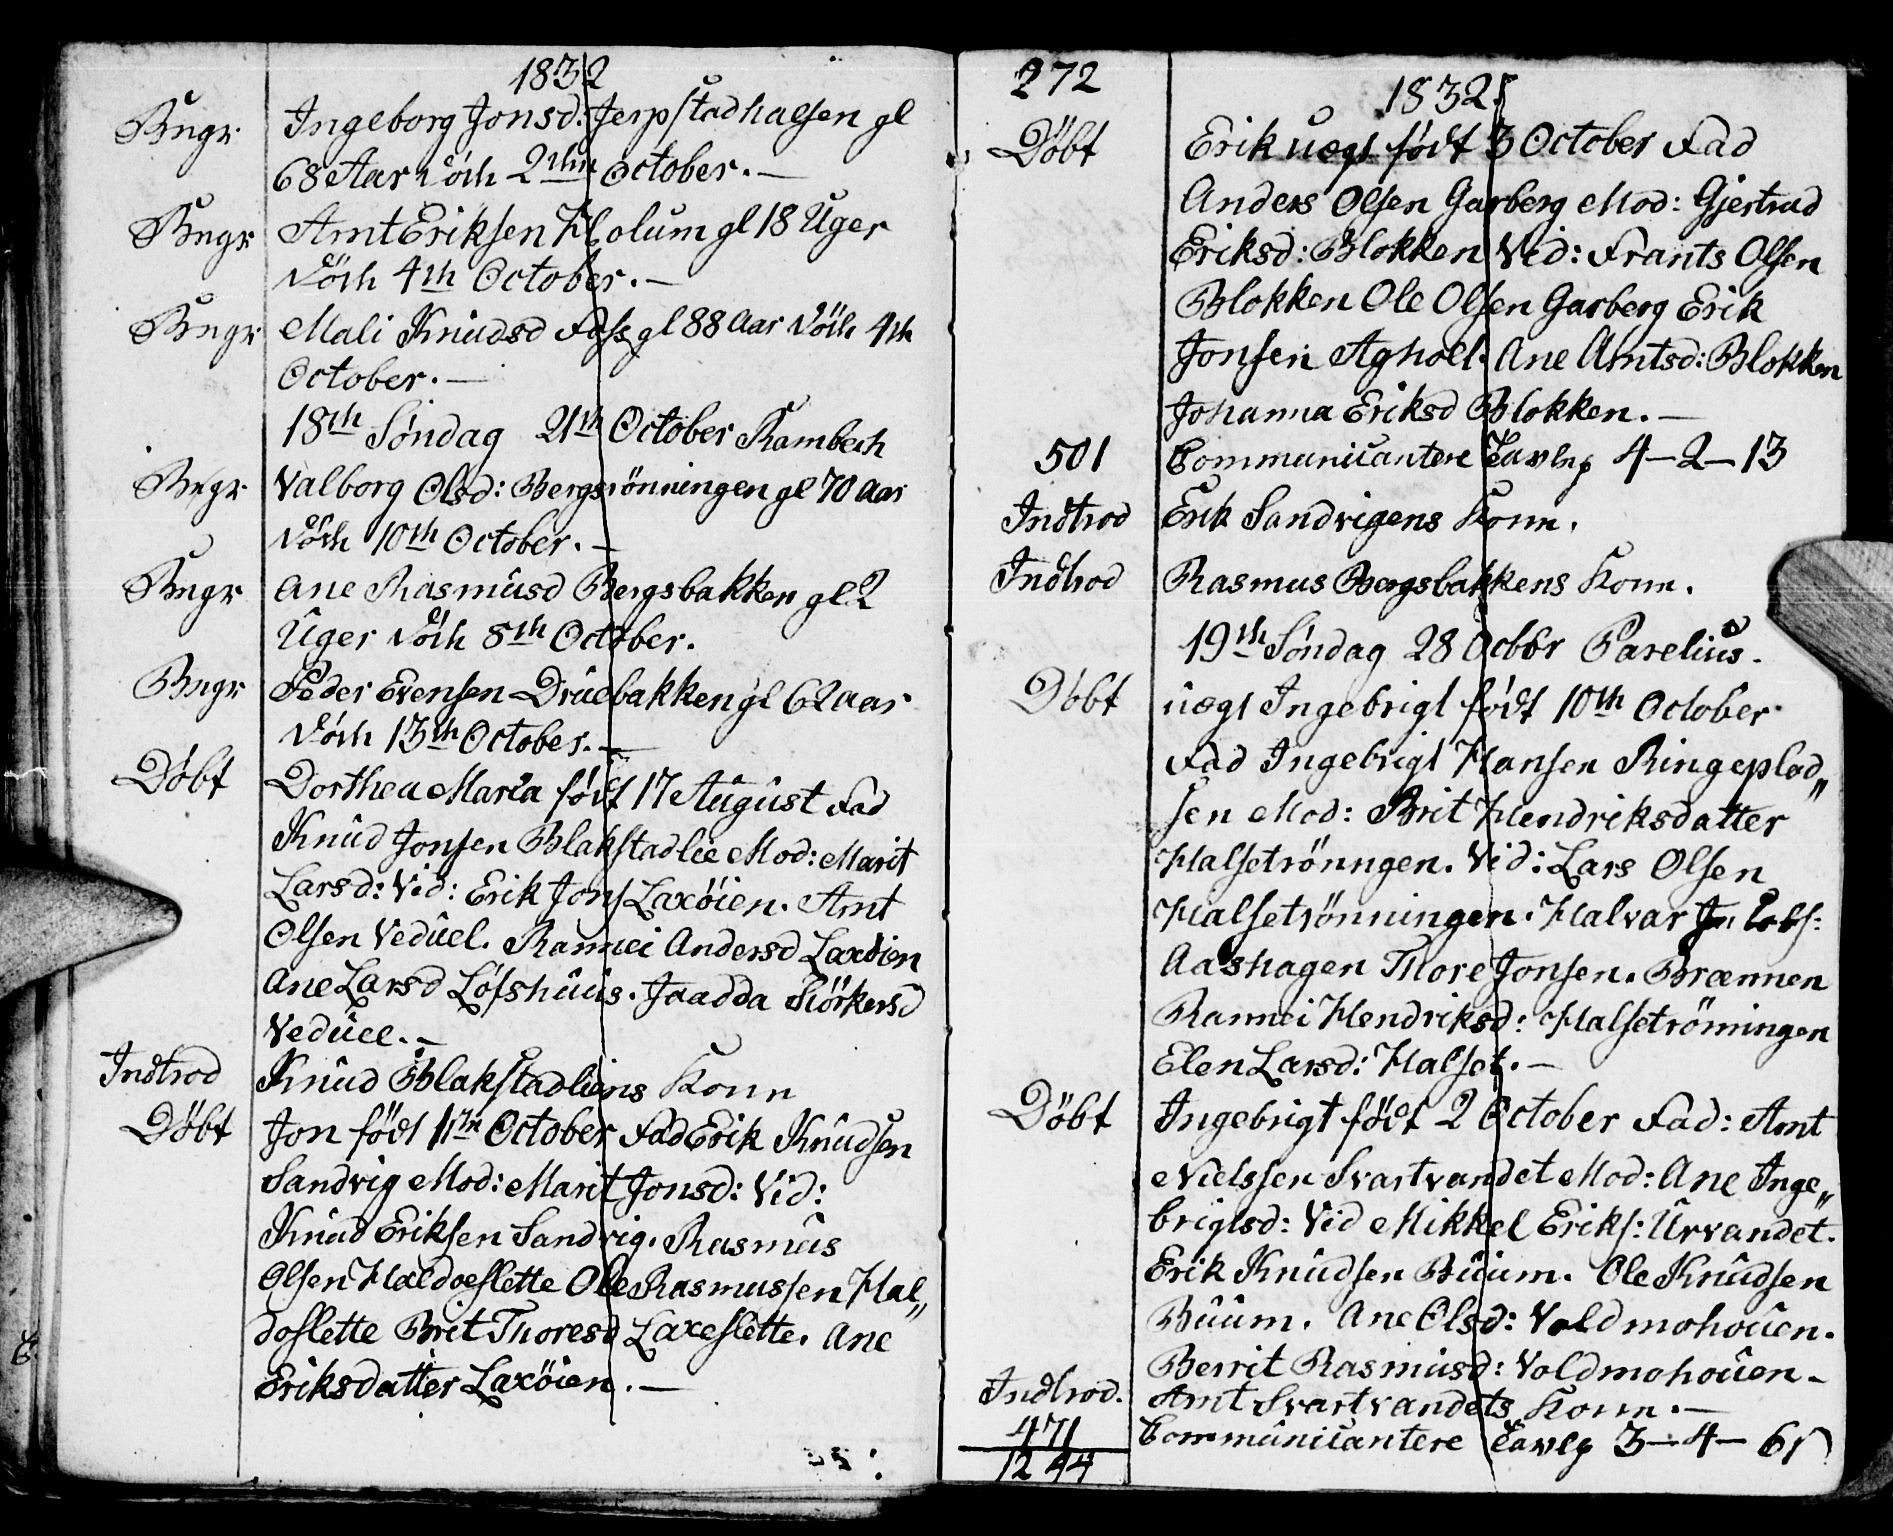 1832
Bngr Ingeborg Jonsd: Jerpstadhalsen gl
68 Aar döde 2den October. —
Bngr Arnt Eriksen Holum gl 18 Uger
döde 4th October. —
Bngr Mali Knudsd Foss gl 88 Aar döde 4th
October. —
18th Söndag 21th October Rambech
Bngr Valborg Olsd: Bergsrönningen gl 70 Aar
döde 10th October. —
Bngr Ane Rasmusd Bergsbakken gl 2
Uger döde 8th October.
Bngr Peder Evensen Druebakken gl 62 aar
döde 13th October. —
Döbt Dorthea Maria födt 17 August Fad
Knud Jonsen Blakstadlie Mod: Marit
Larsd: Vid: Erik Jons Laxöien. Arnt
Olsen Veduel. Rannei Andersd Laxöien
Ane Larsd Löfshuus. Jaadda Siörkersd
Veduel. —
Indtrod Knud Blakstadliens Kone
Döbt Jon födt 11th October Fad Erik Knudsen
Sandvig Mod: Marit Jonsd: Vid:
Knud Eriksen Sandvig. Rasmus
Olsen Haldoeslette Ole Rasmussen Hal„
doslette Brit Thoresd Laxeslette. Ane
Eriksdatter Laxöien. —
272
1832.
Döbt Erik uægt födt 3 October Fad
Anders Olsen Garberg Mod: Gjertrud
Eriksd: Blokken Vid: Frants Olsen
Blokken Ole Olsen Garberg Erik
Jonsen Agholt. Ane Arntsd: Blokken
Johanna Eriksd Blokken. —
501 Communicantere Tavlep 4–2–13
Indtrod Erik Sandvigens Kone.
Indtrod Rasmus Bergsbakkens Kone.
19th Söndag 28 Octbr Parelius.
Döbt uægt Ingebrigt födt 10th October
Fad Ingebrigt Hansen Ringeplad„
sen Mod: Brit Hendriksdatter
Halsetrönngen. Vid: Lars Olsen
Halsetrönningen. Halvar
Aashagen Thore Jonsen. Brænnen
Rannei Hendriksd: Halsetrönningen
Elen Larsd: Halset. —
Döbt Ingebrigt födt 2 October Fad: Arnt
Nielssen Svartvandet Mod: Ane Inge„
brigtsd: Vid Mikkel Eriks: Urvandet.
Erik Knudsen Buum. Ole Knudsen
Buum. Ane Olsd: Voldmohouen.
Berrit Rasmusd: Voldmohouen –
Indtrod. Arnt Svartvandets Kone. —
471 Communicantere Tavlep 3–4–
1244